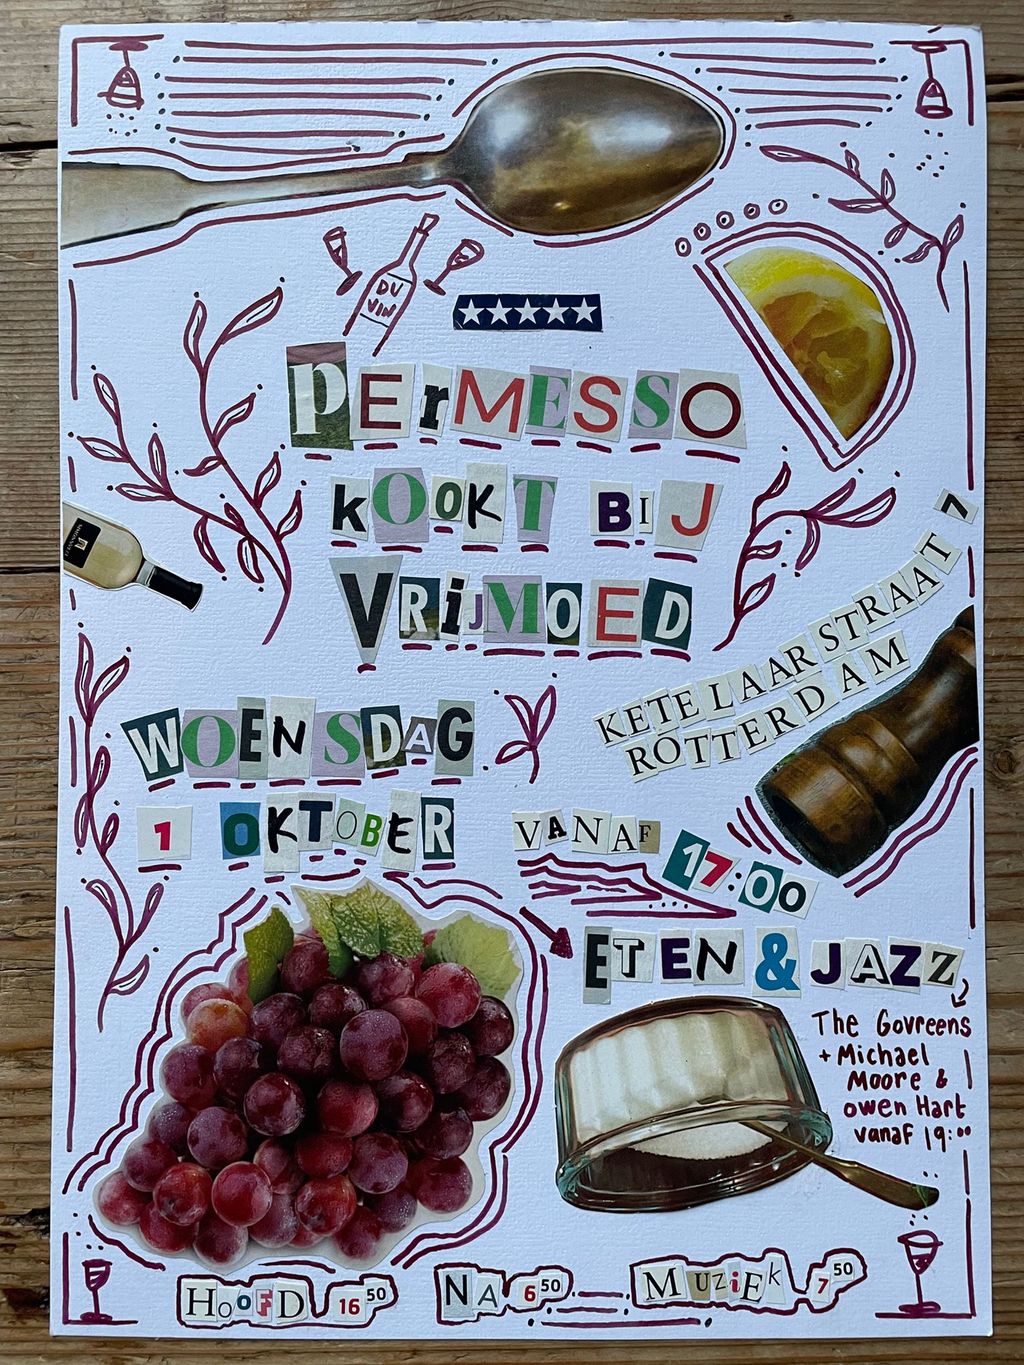 DU
VIN
PErMESSO
KOOKT BIJ
VRiJMOED
KETELAARSTRAAT 7
ROTTERDAM
WOENSDAG
1 OKTOBER
VANAF 17:00
ETEN & JAZZ
The Govreens
+ Michael
Moore &
owen Hart
vanaf 19:00
HOOFD 16 50
NA 6 50
MUZiEK 7 50